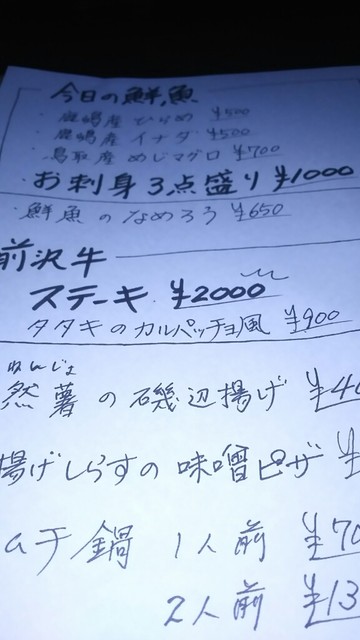 今日の鮮魚
・鹿嶋産ひらめ ¥500
・鹿嶋産イナダ ¥500
・鳥取産めじマグロ ¥700
・お刺身3点盛り ¥1000
・鮮魚のなめろう ¥650
前沢牛
ステーキ ¥2000
タタキのカルパッチョ風 ¥900
ねんじょ
然薯の磯辺揚げ ¥4
揚げしらすの味噌ピザ ¥
チ鍋 1人前 ¥70
2人前 ¥13